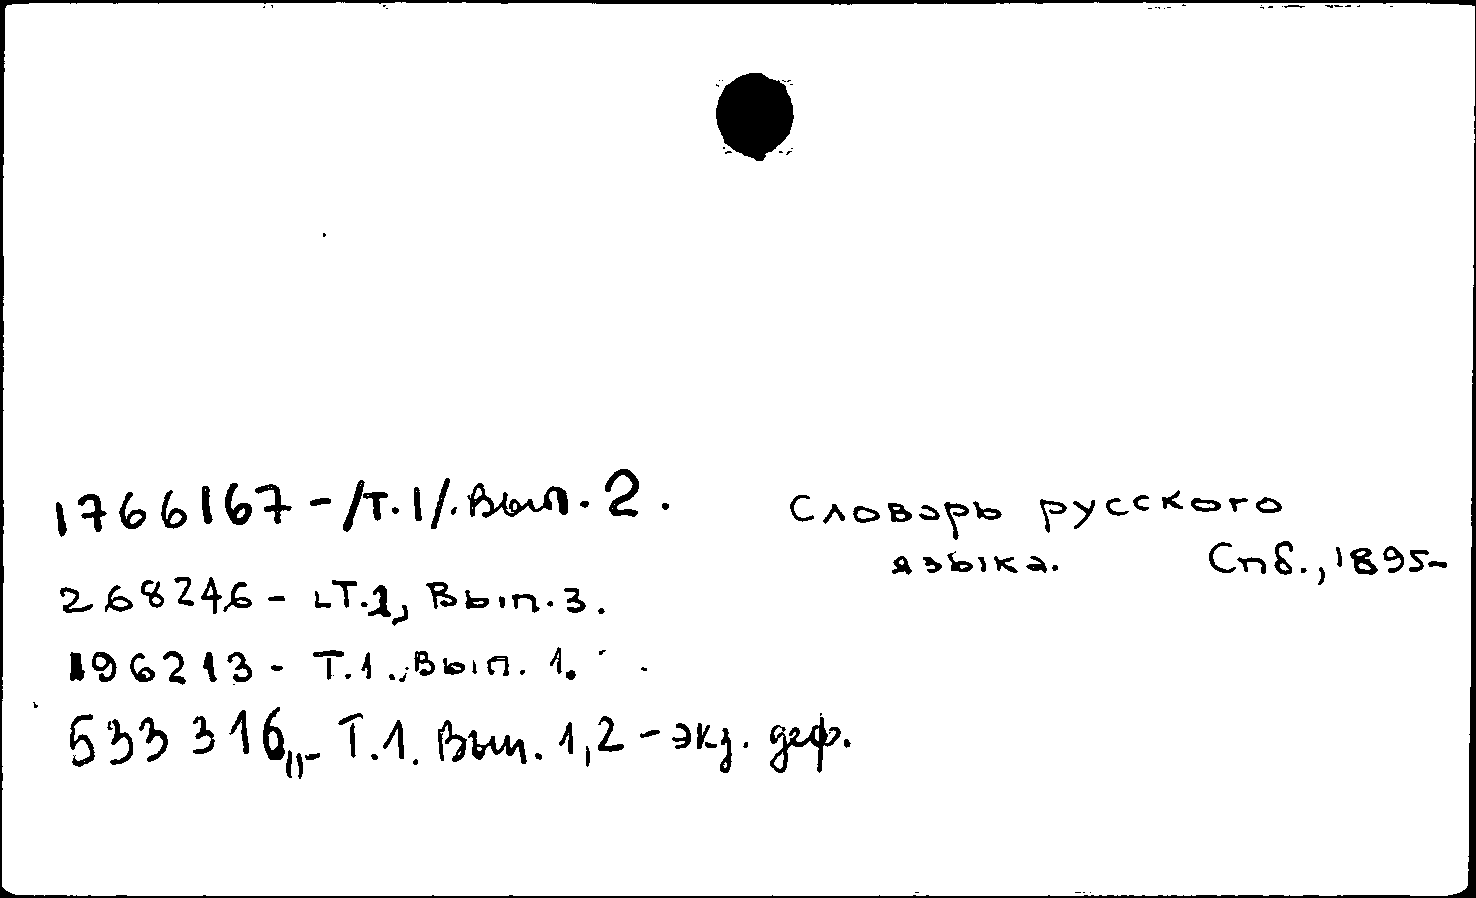 1766167 - /Т.1/. Вып. 2.
Словарь русского
языка. Спб., 1895-
268246 - Т.1, Вып. 3.
196213 - Т.1., Вып. 1.
533316 - Т.1. Вып. 1,2 - экз. деф.